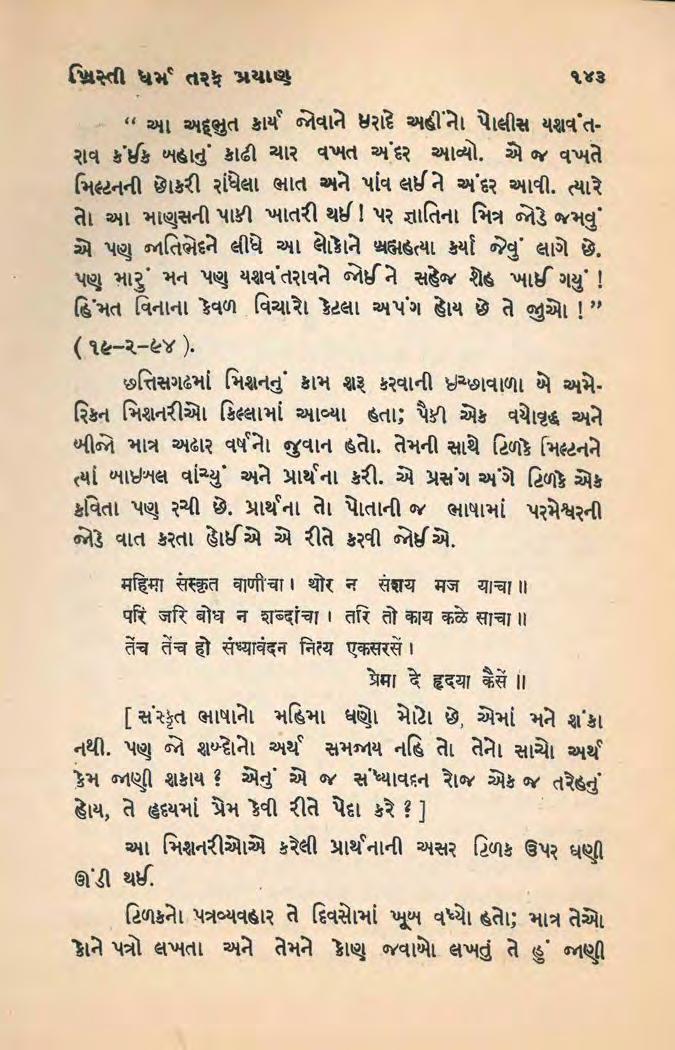 ખ્રિસ્તી ધર્મ તરફ પ્રયાણ ૧૪૩
“ આ અદ્ભુત કાર્ય જોવાને ઇરાદે અહીંનો પોલીસ યશવંત-
રાવ કંઈક બહાનું કાઢી ચાર વખત અંદર આવ્યો. એ જ વખતે
મિલ્ટનની છોકરી રાંધેલા ભાત અને પાંવ લઈને અંદર આવી. ત્યારે
તો આ માણસની પાકી ખાતરી થઈ! પર જ્ઞાતિના મિત્ર જોડે જમવું
એ પણ જાતિભેદને લીધે આ લોકોને બ્રહ્મહત્યા કર્યા જેવું લાગે છે.
પણ મારું મન પણ યશવંતરાવને જોઈને સહેજ શેહ ખાઈ ગયું !
હિંમત વિનાના કેવળ વિચારો કેટલા અપંગ હોય છે તે જુઓ !”
( ૧૯–૨–૯૪ ).
છત્તિસગઢમાં મિશનનું કામ શરૂ કરવાની ઇચ્છાવાળા બે અમે-
રિકન મિશનરીઓ કિલ્લામાં આવ્યા હતા; પૈકી એક વયોવૃદ્ધ અને
બીજો માત્ર અઢાર વર્ષનો જુવાન હતો. તેમની સાથે ટિળકે મિલ્ટનને
ત્યાં બાઇબલ વાંચ્યું અને પ્રાર્થના કરી. એ પ્રસંગ અંગે ટિળકે એક
કવિતા પણ રચી છે. પ્રાર્થના તો પોતાની જ ભાષામાં પરમેશ્વરની
જોડે વાત કરતા હોઈએ એ રીતે કરવી જોઈએ.
महिमा संस्कृत वाणीचा । थोर न संशय मज याचा ॥
परि जरि बोध न शब्दांचा । तरि तो काय कळे साचा ॥
तेंच तेंच हो संध्यावंदन नित्य एकसरसें ।
प्रेमा दे हृदया कैसें ॥
[ સંસ્કૃત ભાષાનો મહિમા ઘણો મોટો છે, એમાં મને શંકા
નથી. પણ જો શબ્દોનો અર્થ સમજાય નહિ તો તેનો સાચો અર્થ
કેમ જાણી શકાય ? એનું એ જ સંધ્યાવદન રોજ એક જ તરેહનું
હોય, તે હૃદયમાં પ્રેમ કેવી રીતે પેદા કરે ? ]
આ મિશનરીઓએ કરેલી પ્રાર્થનાની અસર ટિળક ઉપર ઘણી
ઊંડી થઈ.
ટિળકનો પત્રવ્યવહાર તે દિવસોમાં ખૂબ વધ્યો હતો; માત્ર તેઓ
કોને પત્રો લખતા અને તેમને કોણ જવાબો લખતું તે હું જાણી